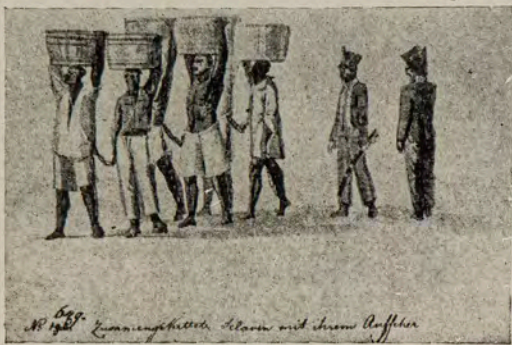 699.
No Zusammengekettete Sclaven mit ihrem Aufseher